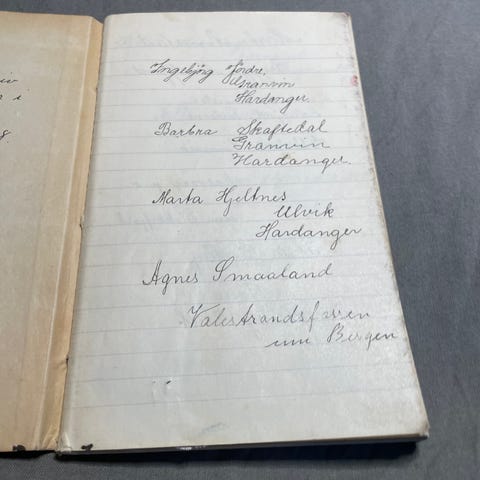 iv
i
g
Ingebjörg Jördre,
Granvin
Hardanger.
Barbra Skaftedal
Granvin
Hardanger.
Marta Hjeltnes
Ulvik
Hardanger
Agnes Smaaland
Valestrandsfossen
um Bergen